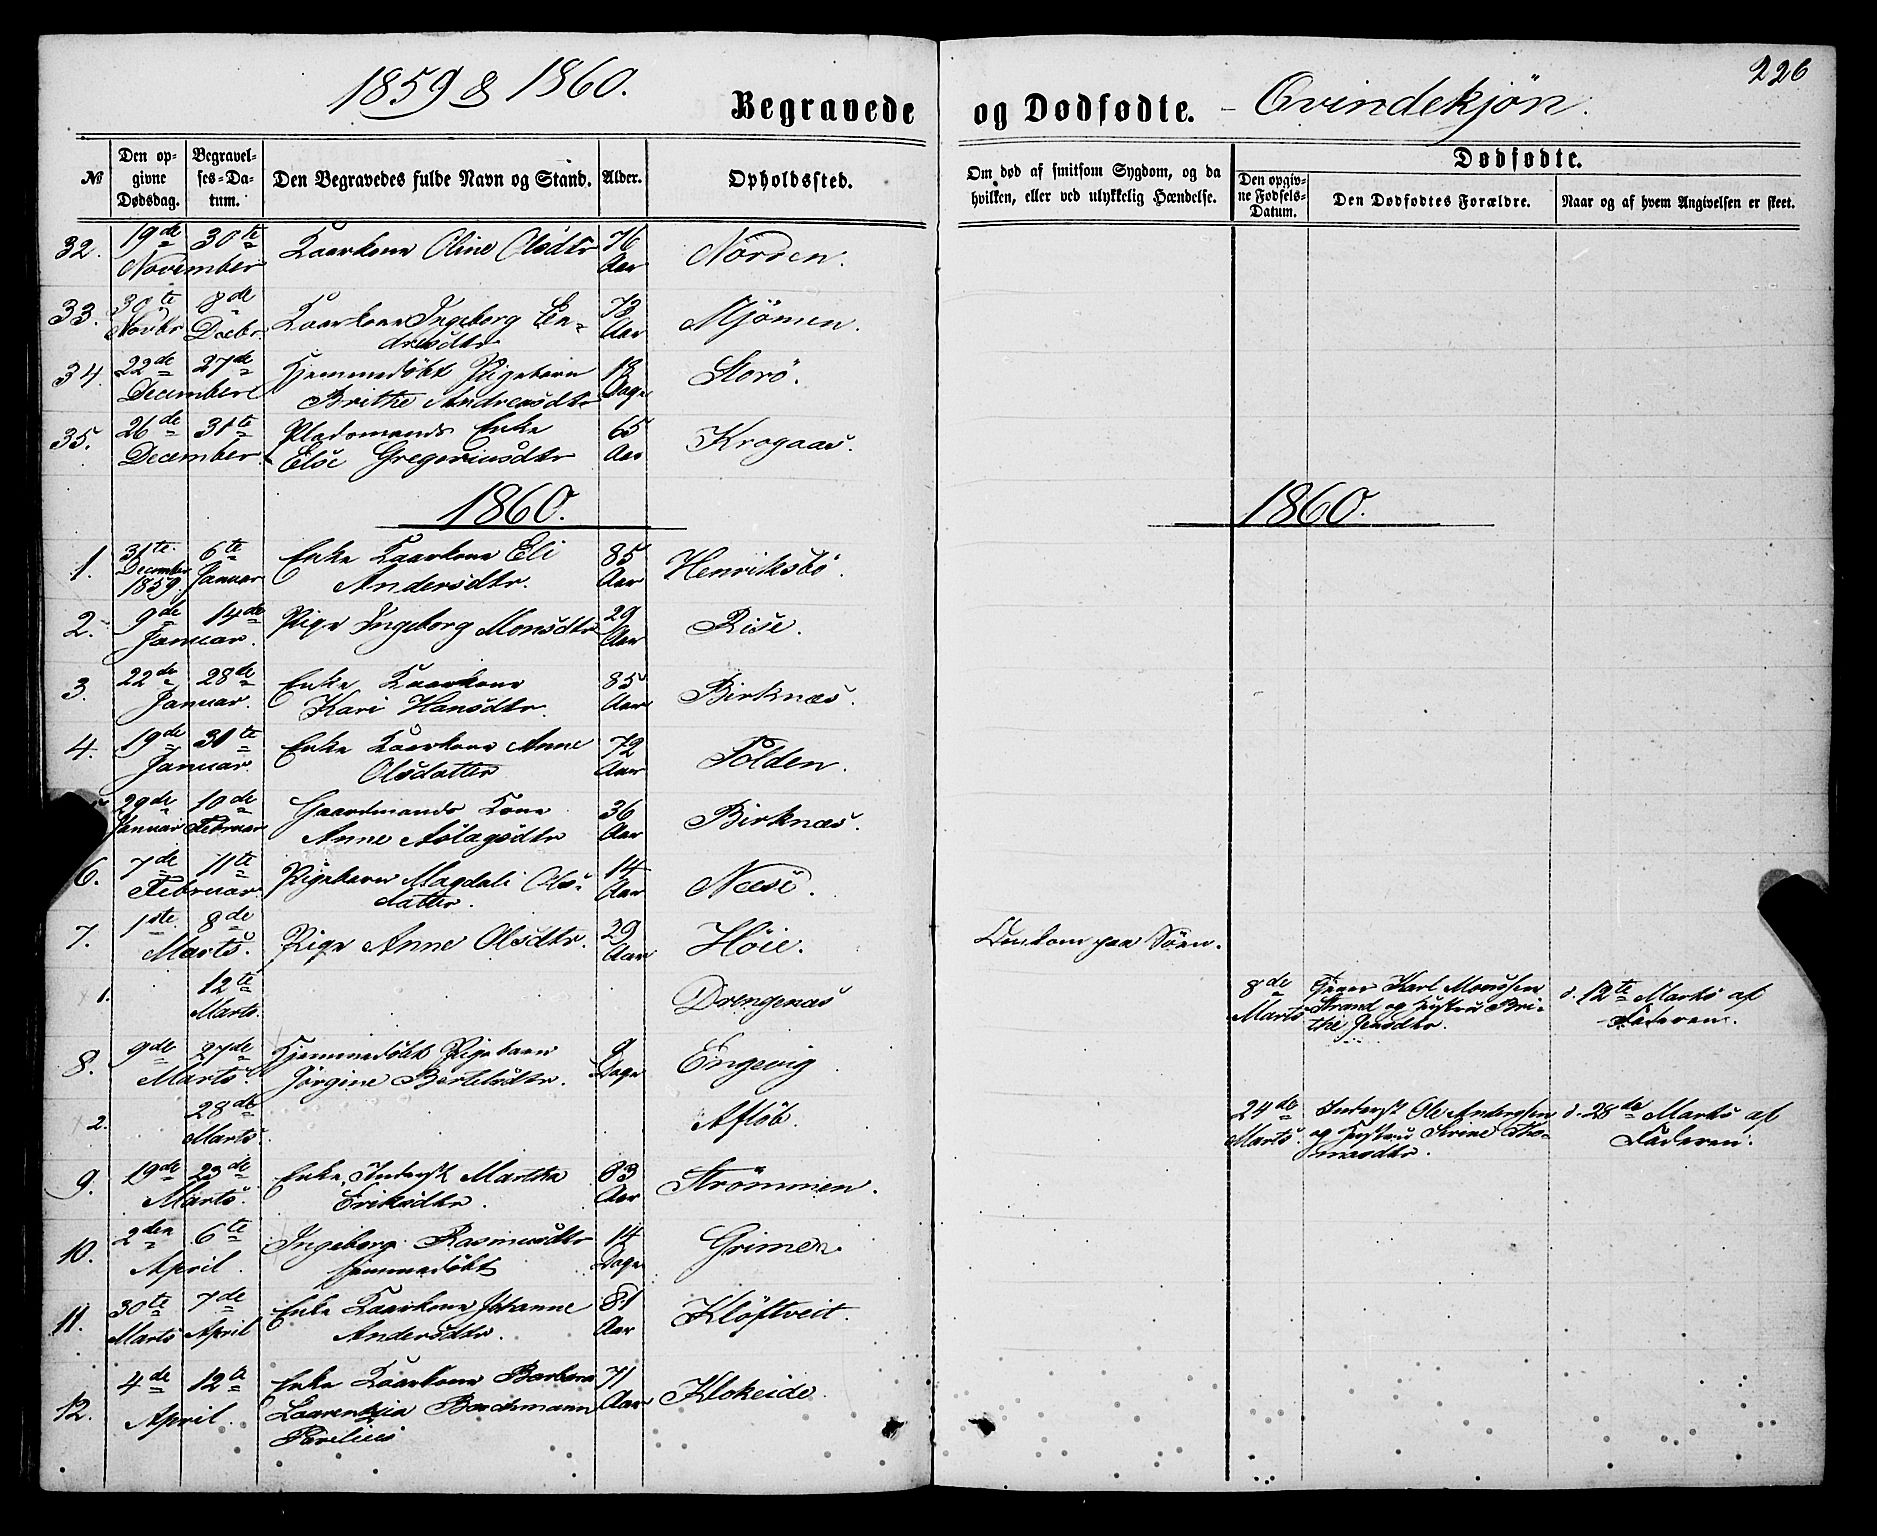 1859 & 1860.
Begravede og Dødfødte. - Qvindekjøn.
226
No
Den opgivne Dødsdag.
Begravelses-Datum.
Den Begravedes fulde Navn og Stand.
Alder.
Opholdssted.
Om død af smitsom Sygdom, og da hvilken, eller ved ulykkelig Hændelse.
Dødfødte.
Den opgivne Fødsels-Datum.
Den Dødfødtes Forældre.
Naar og af hvem Angivelsen er skeet.
32. 19de 30te Kaarkone Oline Olsdtr 76 Nörsen.
November Aar
33. 30te 8de Kaarkone Ingeborg En- 73 Mjömen.
Novbr Decbr. dresdtr Aar
34. 22de 27de Hjemmedöbt Pigebarn 18 Storö.
December Brithe Andreasdtr Dage
35. 26de 31te Pladsmands Enke 65 Krogaas.
December. Else Gregoriusdtr Aar
1860. 1860.
1. 31te December 1859. 6te Januar Enke Kaarkone Eli 85 Henriksbö.
Andersdtr. Aar
2. 9de 14de Pige Ingeborg Monsdtr 29 Rise.
Januar. Aar
3. 22de 28de Enke Kaarkone 85 Birknæs.
Januar. Kari Hansdtr. Aar
4. 19de 31te Enke Kaarkone Anne 72 Tolden.
Januar. Olsdatter Aar
29de 10de Gaardmands Kone 36 Birknæs.
Januar Februar Anne Aslagsdtr Aar
6. 7de 11te Pigebarn Magdali Ols- 14 Neese.
Februar. datter. Aar
7. 1ste 8de Pige Anne Olsdtr. 29 Höie. Omkom paa Söen.
Marts. Aar
1. 12te Marts. Drengenæs 8de Marts Karl Monssen
Strand og Hustru Bri-
the Jensdtr.
d. 12te Marts af
Faderen.
8. 9de 27de Hjemmedöbt Pigebarn 9 Engevig
Marts. Jörgine Bertelsdtr. Dage
2. 28de Marts. Aflöb. 24de Marts. Inderst Ole Anderssen
og Hustru Serine Tho-
masdtr.
d. 28de Marts af
Faderen.
9. 19de 23de Enke, Inderst Martha 83 Strömmen.
Marts. Eriksdtr. Aar
10. 2den 6te Ingeborg Rasmusdtr 14 Grimen
April. hjemmedöbt Dage
11. 30te 7de Enke Kaarkone Johanne 81 Klöftveit.
Marts April Andersdtr. Aar
12. 4de 12te Enke Kaarkone Barbera 71 Klokeide.
April. Laurentzia Bachmann Aar